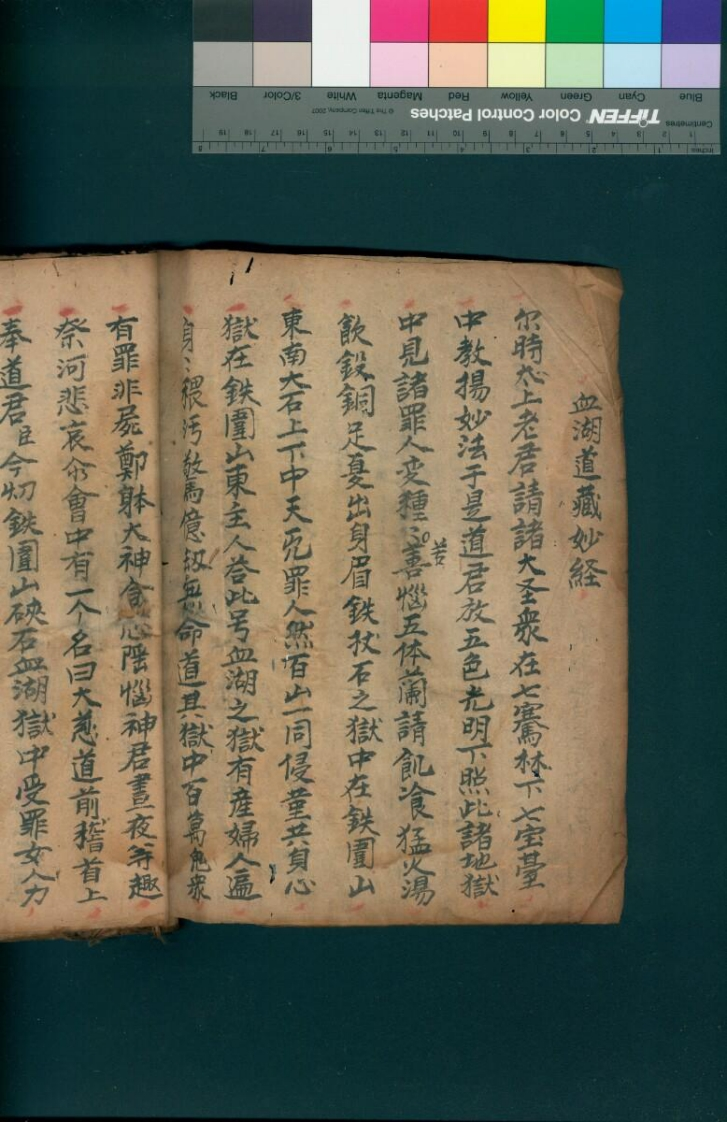 血湖道藏妙経
尔時太上老君請諸大圣衆在七騫林下七宝臺
中教揚妙法于是道君放五色光明下照此諸地獄
中見諸罪人变種〻苦惱五体蘭請飢飡猛火湯
飲鎔銅足憂出身眉鉄杖石之獄中在鉄圍山
東南大石上下中天死罪人然百山一同侵董共身心
獄在鉄圍山東主人荅此号血湖之獄有産婦人遍
身〻穢污敬馬億刼無命道其獄中百萬鬼衆
有罪非屍鄭躰大神含心隂惱神君晝夜等趣
祭河悲哀尒會中有一个名曰大慈道前稽首上
奉道君臣今切鉄圍山硤石血湖獄中受罪女人力
Blue
Cyan
Green
Yellow
Red
Magenta
White
3/Color
Black
TIFFEN Color Control Patches
© The Tiffen Company, 2007
Centimetres
Inches